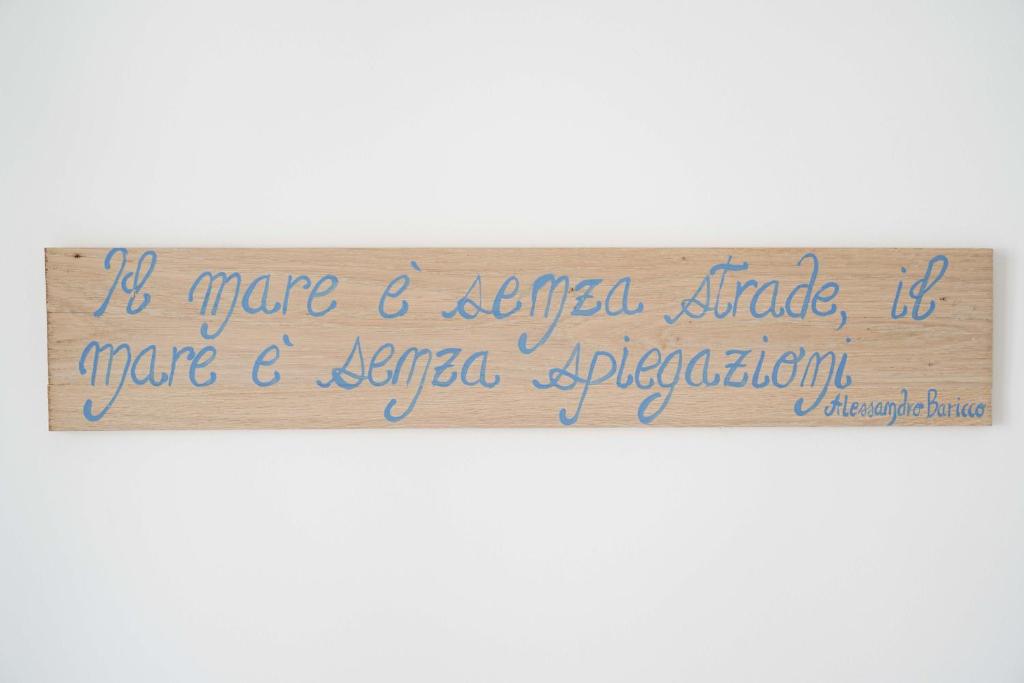 Il mare è senza strade, il
mare è senza spiegazioni
Alessandro Baricco